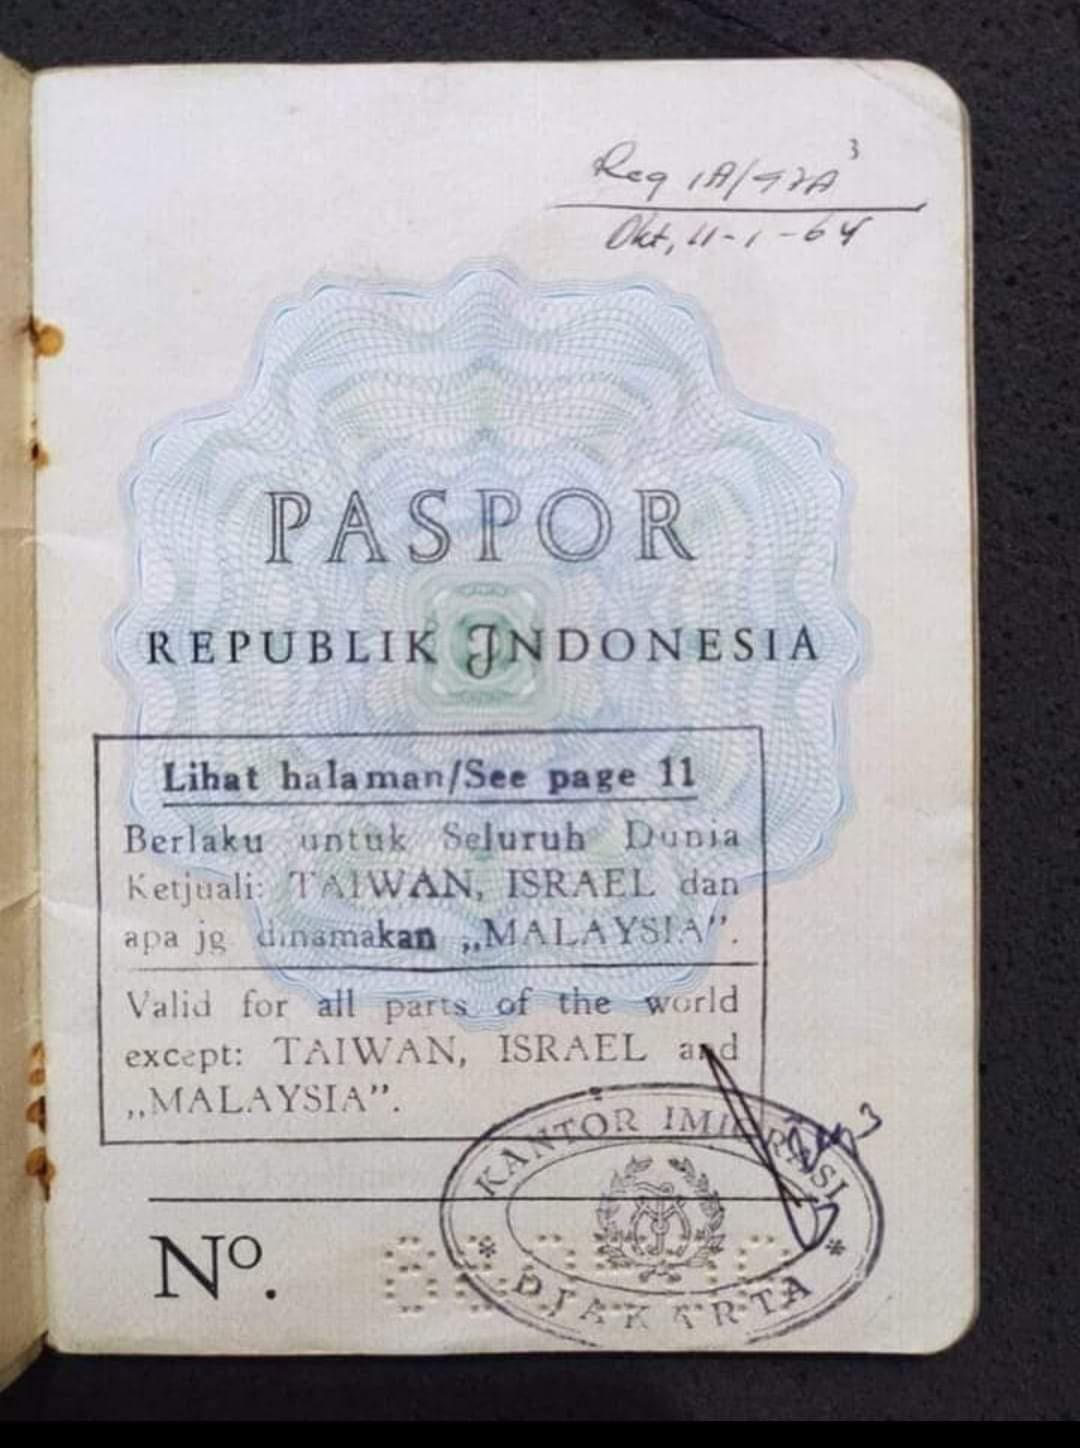 Reg 1A/97A³
Okt, 11-1-64
PASPOR
REPUBLIK INDONESIA
Lihat halaman/See page 11
Berlaku untuk Seluruh Dunia
Ketjuali: TAIWAN, ISRAEL dan
apa jg dinamakan „MALAYSIA”.
Valid for all parts of the world
except: TAIWAN, ISRAEL and
„MALAYSIA”.
KANTOR IMIGRASI
* DJAKARTA *
Nº.